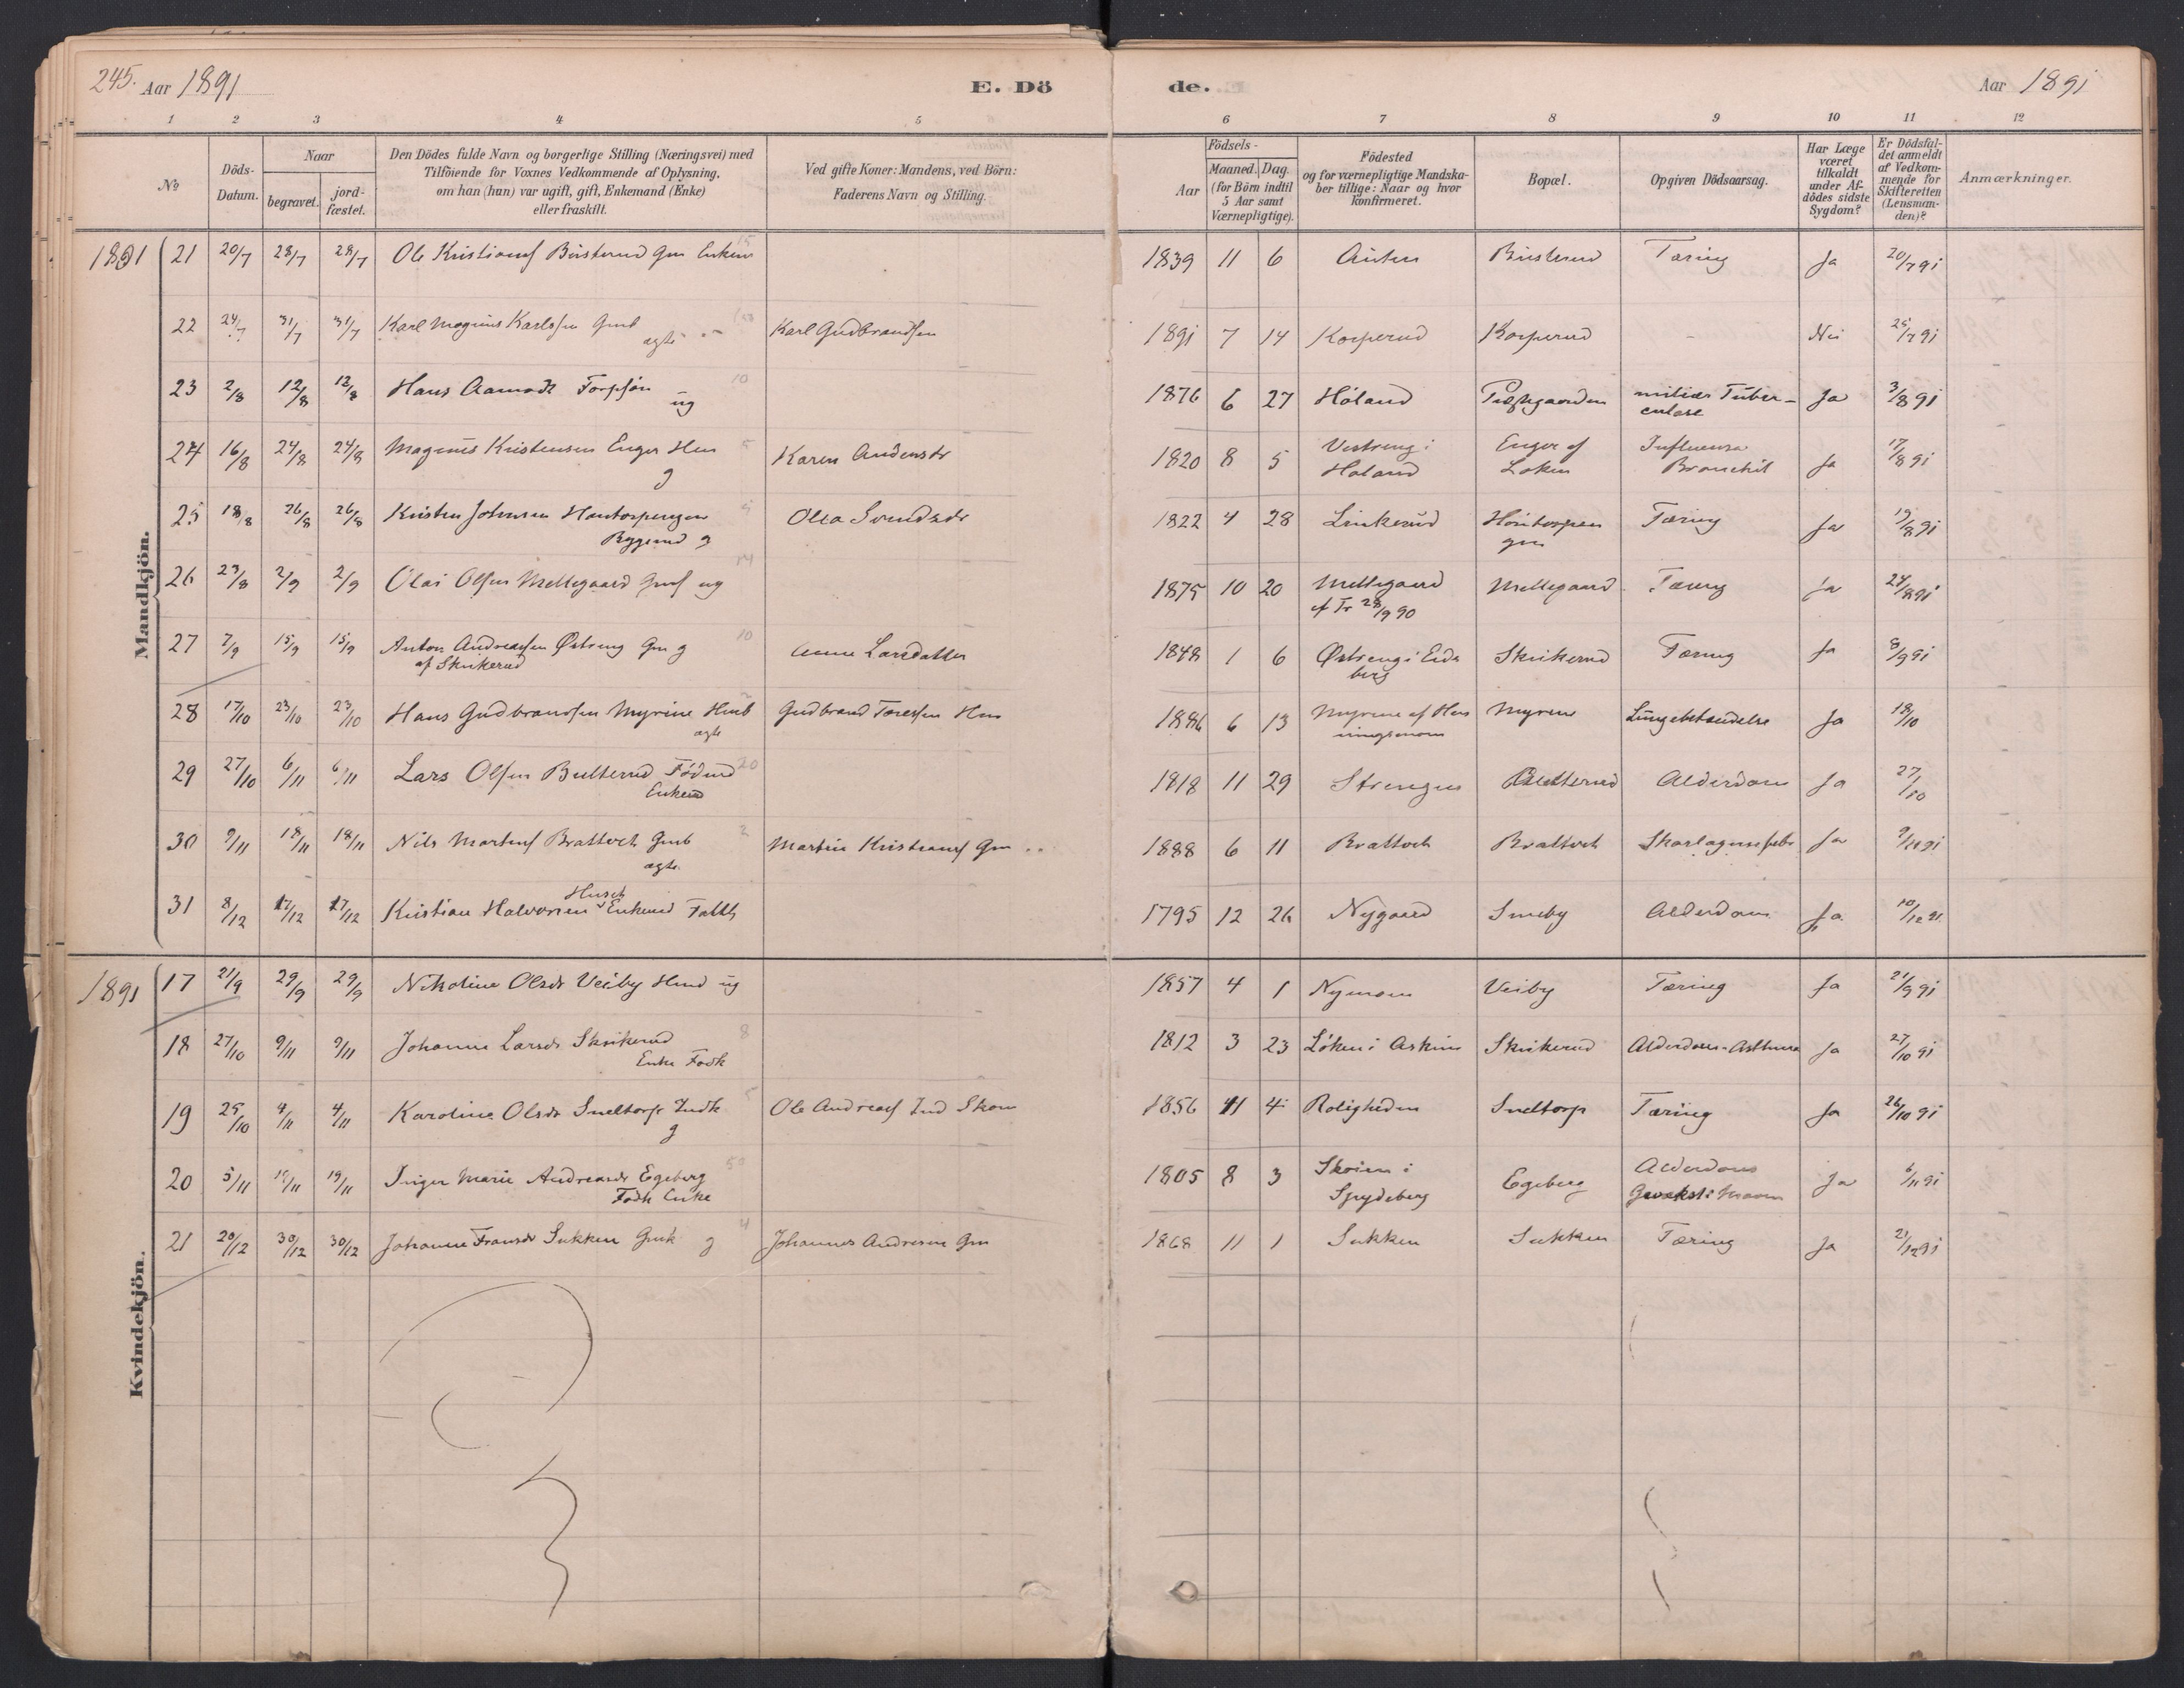 245. Aar 1891 E. Dö de. Aar 1891
1 2 3 4 5 6 7 8 9 10 11 12
No
Döds-Datum.
Naar
begravet.
jord-fæstet.
Den Dödes fulde Navn og borgerlige Stilling (Næringsvei) med
Tilföiende for Voxnes Vedkommende af Oplysning,
om han (hun) var ugift, gift, Enkemand (Enke)
eller fraskilt.
Ved gifte Koner: Mandens, ved Börn:
Faderens Navn og Stilling.
Födsels-
Aar
Maaned. Dag.
(for Börn indtil
5 Aar samt
Værnepligtige).
Födested
og for værnepligtige Mandska-
ber tillige: Naar og hvor
konfirmeret.
Bopæl.
Opgiven Dödsaarsag.
Har Læge
været
tilkaldt
under Af-
dödes sidste
Sygdom?
Er Dödsfal-
det anmeldt
af Vedkom-
mende for
Skifteretten
(Lensman-
den)?
Anmærkninger.
Mandkjön.
1891 21 20/7 28/7 28/7 Ole Kristians Gm 1839 11 6 Tæring Ja 20/7 91
22 24/7 31/7 31/7 Karl Magnus Karlsen Gmb ægte Karl Gudbrandsen 1891 7 14 Korperud Korperud - Nei 25/7 91
23 2/8 12/8 12/8 Hans Aamodt Torpsjøn ug 1876 6 27 Høland miliær Tuber-
culose Ja 3/8 91
24 16/8 24/8 24/8 Magnus Kristensen Enger Hm g Karen Andersdr 1820 8 5 Vestreng i
Høland Enger af
Løken Influensa
Bronchit Ja 17/8 91
25 18/8 26/8 26/8 Kristen Johnsen
g Olea Svendsdr 1822 4 28 Linkerud Tæring Ja 19/8 91
26 23/8 2/9 2/9 Olai Olsen Mellegaard Gms ug 1875 10 20 Mellegaard
af Tr 28/9 90 Mellegaard Tæring Ja 24/8 91
27 7/9 15/9 15/9 Anton Andreassen Østreng Gm g
af Skrikerud Anne Larsdatter 1848 1 6 Østreng i Eids
berg Skrikerud Tæring Ja 8/9 91
28 17/10 23/10 23/10 Hans Gudbrandsen Myrene Hmb
ægte Gudbrand Toresen Hm 1886 6 13 Myrene af Hen
ningsmoen Myrene Lungebetændelse Ja 18/10
29 27/10 6/11 6/11 Lars Olsen Butterud Födrd
Enkem 1818 11 29 Strengen Butterud Alderdom Ja 27/10
30 9/11 18/11 18/11 Nils Martins Brattvet Gmb
ægte Martin Kristians Gm 1888 6 11 Brattvet Brattvet Skarlagensfeber Ja 9/11 91
31 8/12 17/12 17/12 Kristian Halvorsen Enkemd Fattg 1795 12 26 Nygaard Smeby Alderdom Ja 10/12 91
Kvindekjön.
1891 17 21/9 29/9 29/9 Nikoline Olsdr Veiby Hmd ug 1857 4 1 Nymoen Veiby Tæring Ja 21/9 91
18 27/10 9/11 9/11 Johanne Larsdr Skrikerud
Enke Fodk 1812 3 23 Löken i Askim Skrikerud Alderdom-Asthma Ja 27/10 91
19 25/10 4/11 4/11 Karoline Olsdr Sneltorp Indk
g Ole Andreas Ind Skom 1856 11 4 Roligheden Sneltorp Tæring Ja 26/10 91
20 5/11 19/11 19/11 Inger Marie Andreasdr Egeberg
Fodk Enke 1805 8 3 Skoien i
Spydeberg Egeberg Alderdom
Gevækst i Maven Ja 6/11 91
21 20/12 30/12 30/12 Johanne Fransdr Sukken Gmk g Johannes Andresen Gm 1868 11 1 Sukken Sukken Tæring Ja 21/12 91